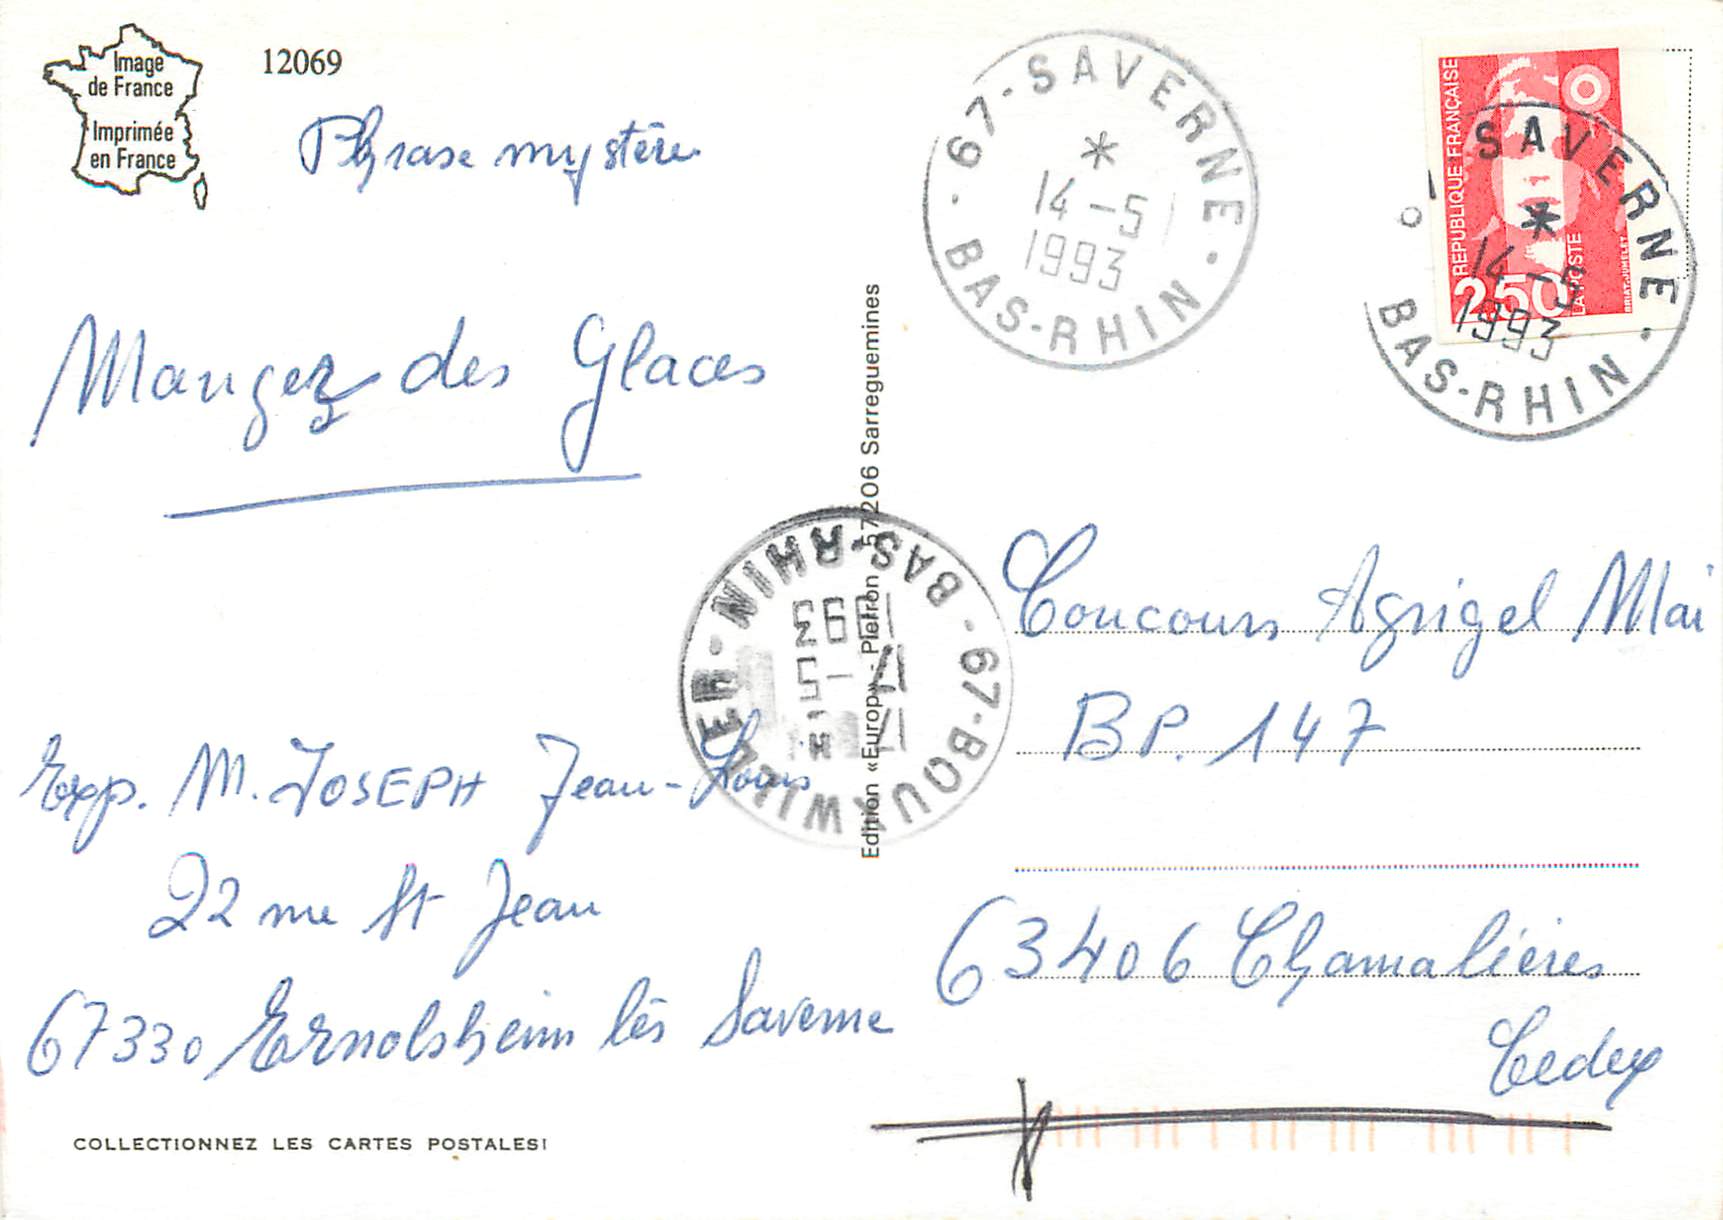 Image
de France
Imprimée
en France
12069
Phrase mystère
Mangez des Glaces
Exp. M. JOSEPH Jean-Louis
22 rue St Jean
67330 Ernolsheim lès Saverne
COLLECTIONNEZ LES CARTES POSTALES!
Edition «Europ» - Pierron - 57206 Sarreguemines
67-BOUXWILLER - BAS-RHIN
17-5
1993
67-SAVERNE
*
14-5
1993
BAS-RHIN
REPUBLIQUE FRANÇAISE
2,50
LA POSTE
BRIAT-JUMELET
SAVERNE
*
14-5
1993
BAS-RHIN
Concours Agrigel Mai
BP. 147
63406 Chamalières
Cedex